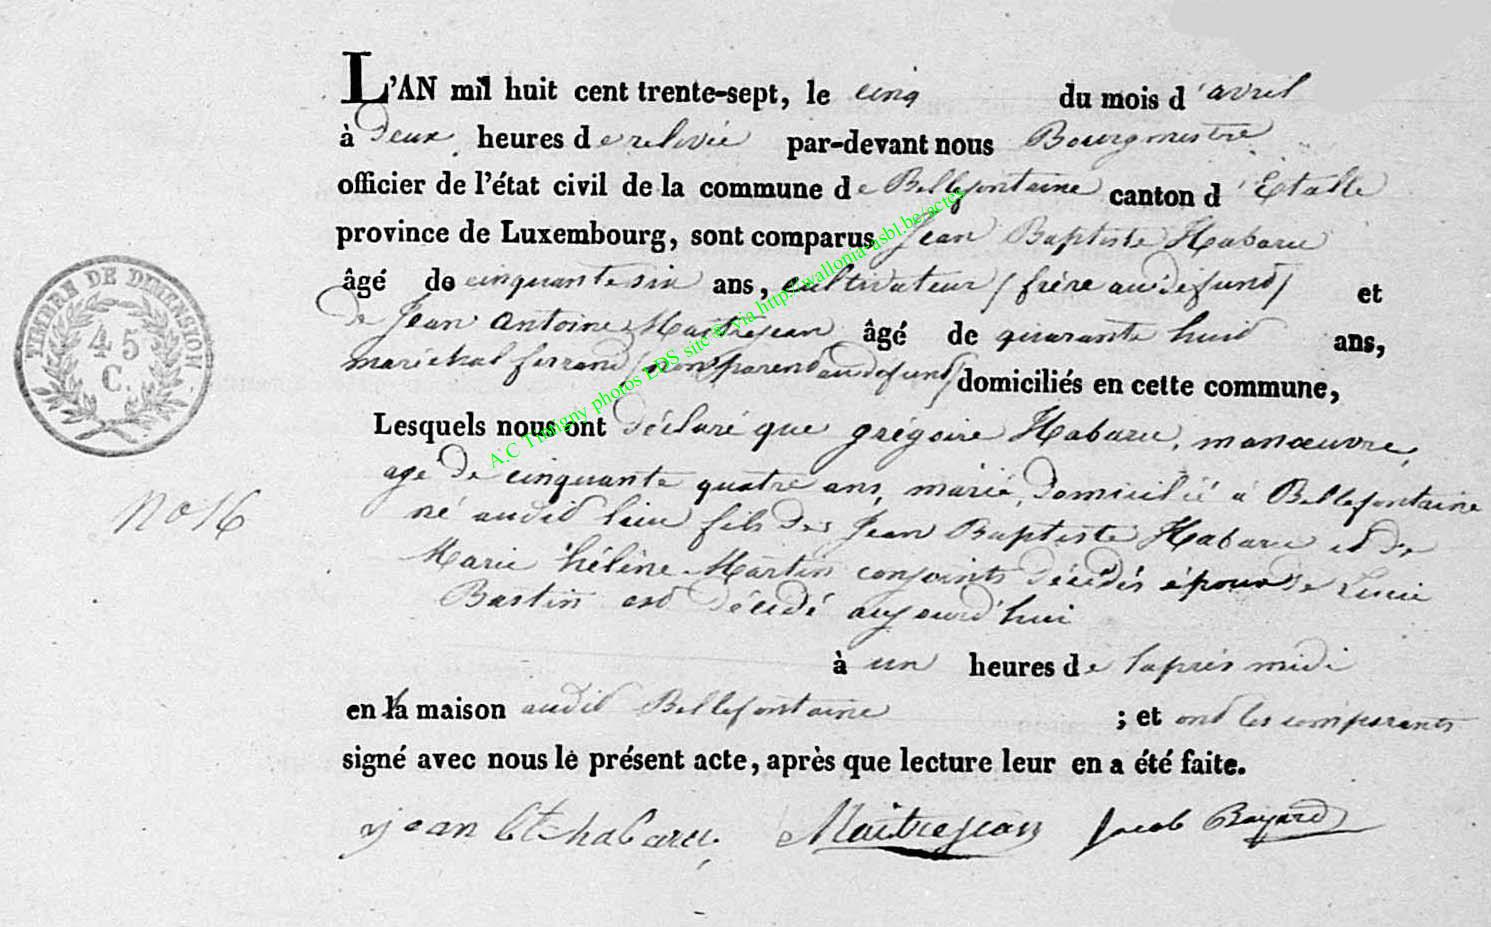 L'AN mil huit cent trente-sept, le cinq du mois d'avril
à deux heures de relevée par-devant nous Bourgmestre
officier de l'état civil de la commune de Bellefontaine canton d'Etalle
province de Luxembourg, sont comparus Jean Baptiste Habaru
âgé de cinquante six ans, cultivateur (frère au défunt) et
de Jean Antoine Maitrejean âgé de quarante huit ans,
maréchal ferrand (non parent au défunt) domiciliés en cette commune,
Lesquels nous ont déclaré que grégoire Habaru, manœuvre,
agé de cinquante quatre ans, marié, domicilié à Bellefontaine
né audit lieu fils de Jean Baptiste Habaru et de
Marie hélène Martin conjoints décédés époux de Lucie
Bastin est décédé aujourd'hui
à un heures de l'après midi
en la maison audit Bellefontaine ; et ont les comparants
signé avec nous le présent acte, après que lecture leur en a été faite.
jean bte habaru, Maitrejean Jacob Bayard
TIMBRE DE DIMENSION.
45
C.
No 16
A.C Tintigny photos LDS site © via http://wallonia-asbl.be/actes